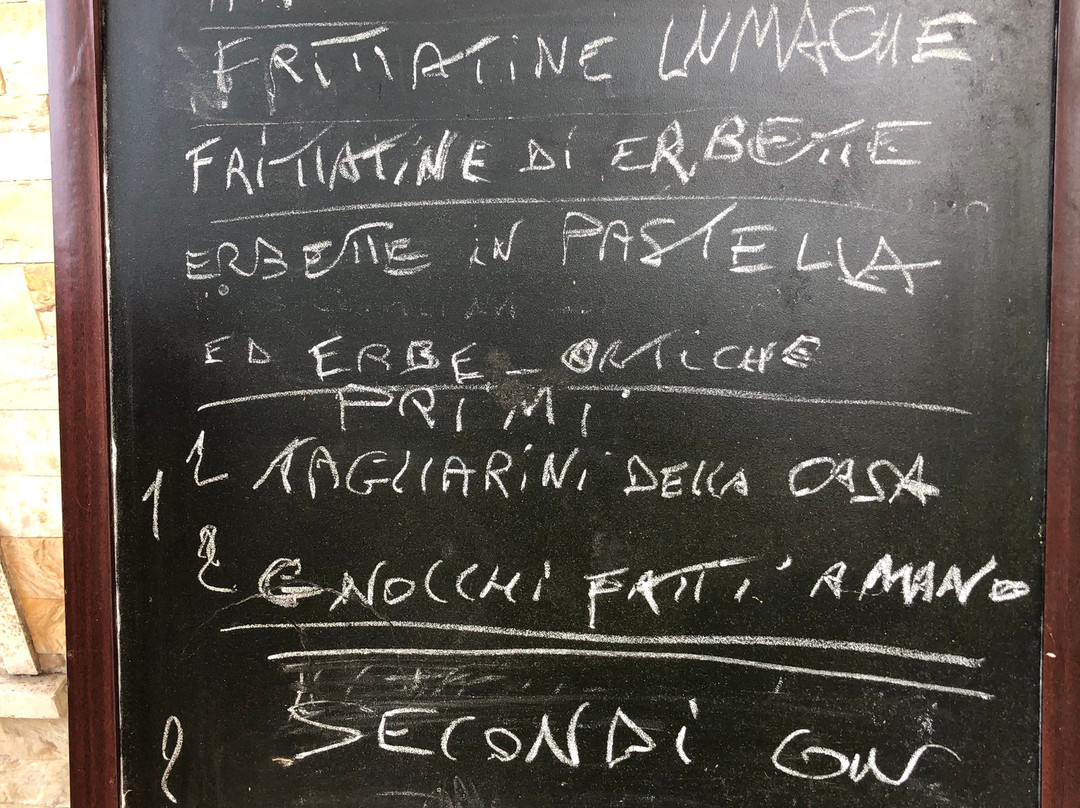 FRITTATINE LUMACHE
FRITTATINE DI ERBETTE
ERBETTE IN PASTELLA
ED ERBE - ORTICHE
PRIMI
1 TAGLIARINI DELLA CASA
1
2 GNOCCHI FATTI A MANO
SECONDI
2